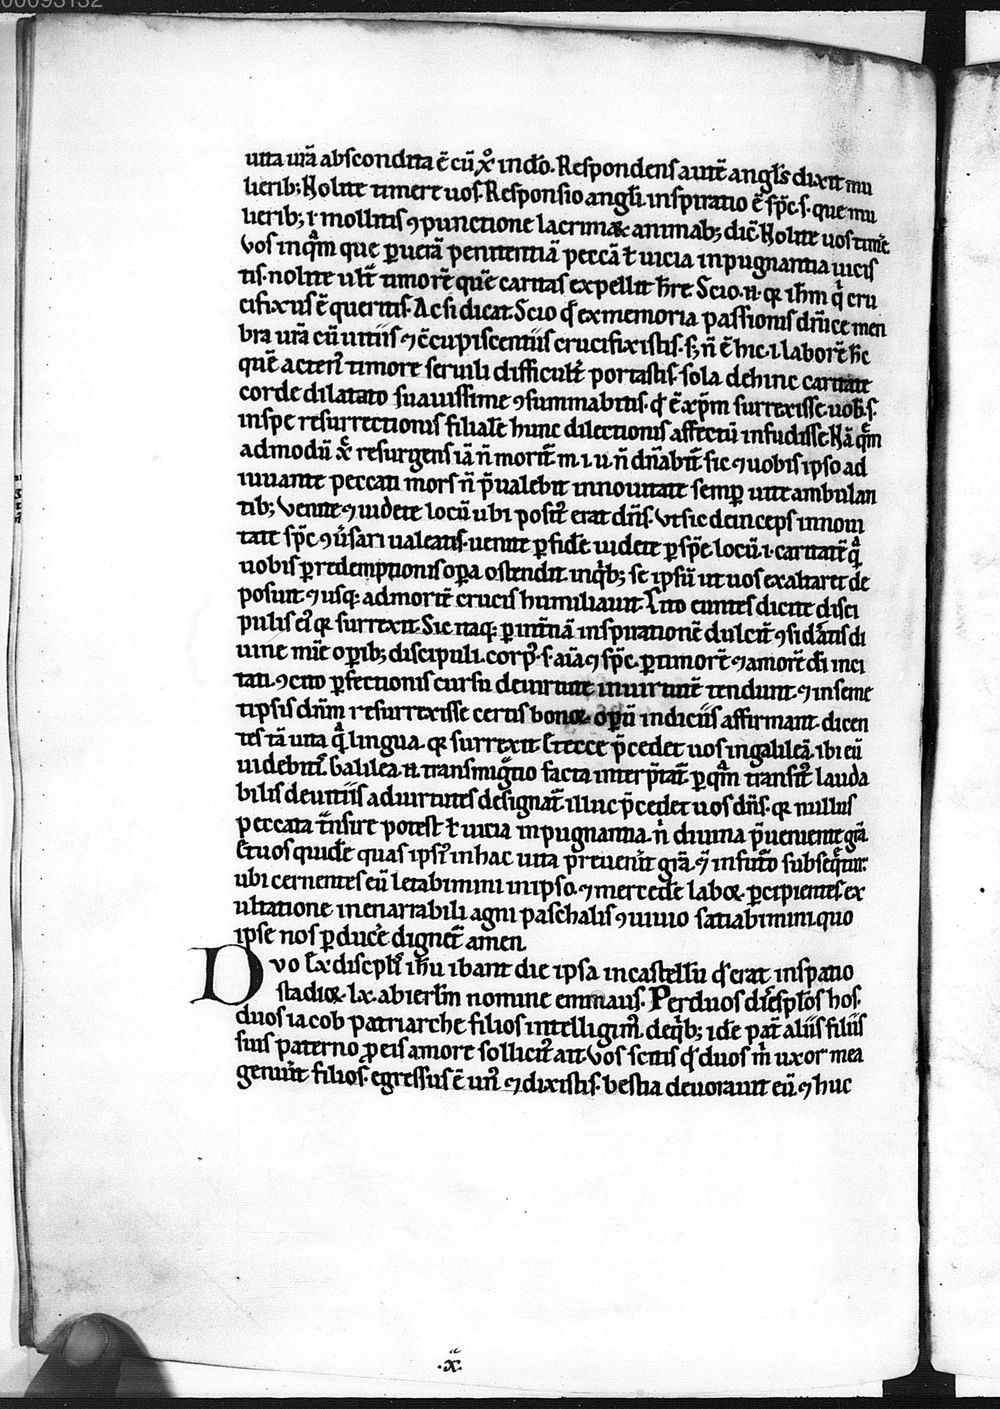 00093132
uita ur̄a abscondita ē cū xp̊o in dō. Respondens aut̄e angl̄s dixit mu
lierib; Nolite timere uos. Responsio angl̄i inspiratio ē sp̄c s. que mu
lierib; i mollitis ꝯpunctione lacrimaꝝ animab; dic̄ Nolite uos timer̄e
Vos inqͣm que ꝑ uerā penitentiā peccā ł uicia inpugnantia uicis
tis. nolite ult̄ timor̄e quē caritas expellit h̄re Scio .n̄. qꝛ ih̄m qͥ cru
cifixus ē queritis. Ac si dicat. Scio qđ ex memoria passionis dn̄ice mem
bra ur̄a cū uitiis ⁊ ꝯcupiscentiis crucifixistis. s; n̄ ē hic .i. labor̄e h̄c
quē acten᷒ timore seruili difficult̄ portastis. sola dehinc caritate
corde dilatato suauissime ꝯsummabitis. qđ ē xp̄m surrexisse. uob̄ .s.
in spe resurrectionis filialē hunc dilectionis affectū infudisse Nā qͣm
admodū xp̄c resurgens iā n̄ morit̄. m. i. u. n̄ dn̄abit̄ sic ⁊ uobis ipso ad
iuuante peccati mors n̄ p̄ualebit in nouitate semꝑ uite ambulan
tib; Venite ⁊ uidete locū ubi posit᷒ erat dn̄s. Vt sic deinceps in noui
tate sp̄c ꝯuersari ualeatis. uenite ꝑ fidē uidete ꝑ sp̄c locū .i. caritatē qͣ
uobis ꝑ redemptionis oꝑa ostendit. in qͥb; se ipsū ut uos exaltaret de
posuit ⁊ usq; ad mortē crucis humiliauit. Cito euntes dicite disci
pulis ei᷒ qꝛ surrexit. Sic itaq; ꝑ int̄nā inspirationē dulcit̄ ꝯsiđatis di
uine mīe oꝑib; discipuli. corp᷒ .s. aīa ⁊ sp̄c. ꝑ timorē ⁊ amorē dī inci
tati. ꝯ cito ꝑfectionis cursu de uirtute in uirtutē tendunt ⁊ inseme
tipsis dn̄m resurrexisse certis bonoꝝ oꝑū indiciis affirmant. dicen
tes tā uita qͣ lingua. qꝛ surrexit Et ecce p̄cedet uos in galileā. ibi eū
uidebitis. Galilea .n̄. transmigr̄tio facta interp̄tat̄. ꝑ qͣm transit᷒ lauda
bilis de uitiis ad uirtutes designat̄. illuc p̄cedet uos dn̄s. qꝛ nullus
peccata tn̄sire potest ł uicia inpugnantia. n̄ diuina p̄ueniente gr̄a.
Et uos quidē quas ipsi᷒ in hac uita preuenit gr̄a. ⁊ in futuro subseqͥtur.
ubi cernentes eū letabimini in ipso. ⁊ mercedē laboꝝ ꝑcipientes. ex
ultatione inenarrabili agni paschalis ꝯuiuio satiabimini. quo
ipse nos ꝑducē dignet̄ amen.
Dvo Ex discipl̄is ih̄u ibant die ipsa in castellū qđ erat in spatio
stadioꝝ .lx. ab ierl̄m nomine emmaus. Per duos discip̄los hos.
duos iacob patriarche filios intelligim᷒. de qͥb; idē pat̄ aliis filiis
suis paterno ꝓ eis amore sollicit᷒ ait. Vos scitis qđ duos m̄ uxor mea
genuit filios. egressus ē un᷒ ⁊ dixistis. bestia deuorauit eū. ⁊ huc
.x̄.